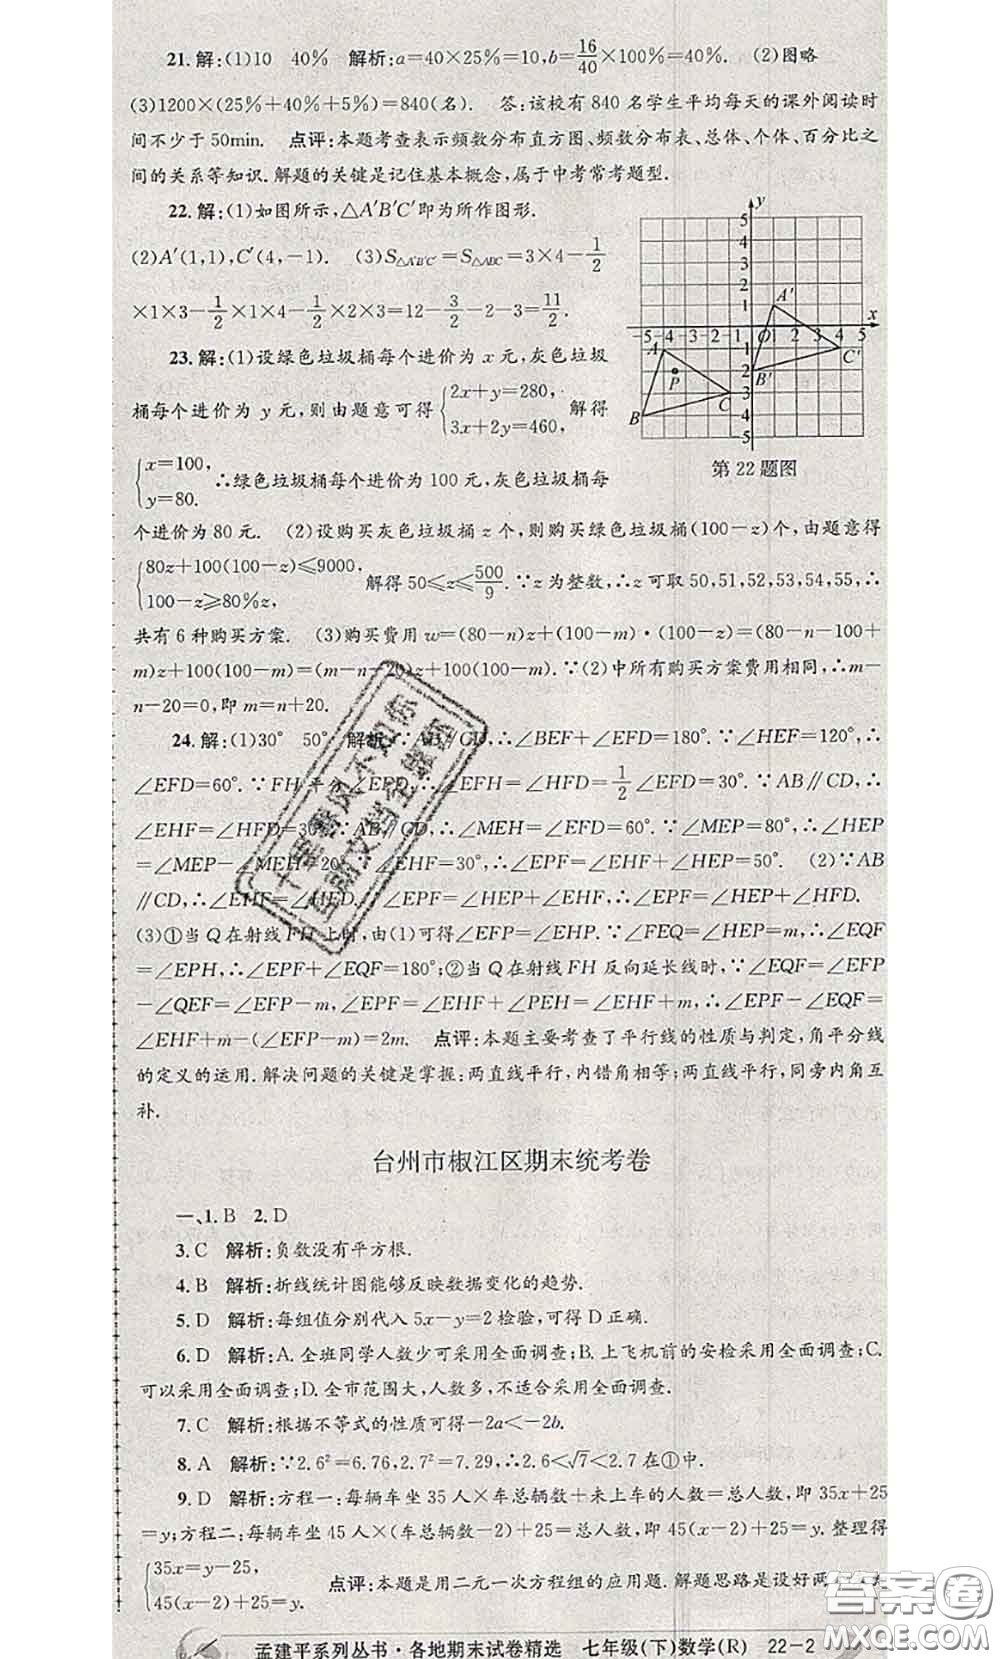 21.解:(1)10　40%　解析:a=40×25%=10,b=16/40×100%=40%.　(2)图略
(3)1200×(25%+40%+5%)=840(名).　答:该校有840名学生平均每天的课外阅读时
间不少于50min.　点评:本题考查表示频数分布直方图、频数分布表、总体、个体、百分比之
间的关系等知识.解题的关键是记住基本概念,属于中考常考题型.
22.解:(1)如图所示,△A′B′C′即为所作图形.
(2)A′(1,1),C′(4,-1).　(3)S△A′B′C′=S△ABC=3×4-1/2
×1×3-1/2×1×4-1/2×2×3=12-3/2-2-3=11/2.
y
5
4
3
2
1
A′
x
-5-4-3-2-1 O 1 2 3 4 5
A
-1
C′
P
-2
B′
C
-3
B
-4
-5
第22题图
23.解:(1)设绿色垃圾桶每个进价为x元,灰色垃圾
桶每个进价为y元,则由题意可得{2x+y=280, 3x+2y=460,解得
{x=100, y=80.∴绿色垃圾桶每个进价为100元,灰色垃圾桶每
个进价为80元.　(2)设购买灰色垃圾桶z个,则购买绿色垃圾桶(100-z)个,由题意得
{80z+100(100-z)≤9000, 100-z≥80%z,解得50≤z≤500/9.∵z为整数,∴z可取50,51,52,53,54,55,∴
共有6种购买方案.　(3)购买费用w=(80-n)z+(100-m)·(100-z)=(80-n-100+
m)z+100(100-m)=(m-n-20)z+100(100-m).∵(2)中所有购买方案费用相同,∴m-
n-20=0,即m=n+20.
24.解:(1)30°　50°　解析:∵AB∥CD,∴∠BEF+∠EFD=180°.∵∠HEF=120°,∴
∠EFD=60°.∵FH平分∠EFD,∴∠HFD=1/2∠EFD=30°.∵AB∥CD,∴
∠EHF=∠HFD=30°.∵AB∥CD,∴∠MEH=∠EFD=60°.∵∠MEP=80°,∴∠HEP
=∠MEP-∠MEH=20°.∵∠EHF=30°,∴∠EPF=∠EHF+∠HEP=50°.　(2)∵AB
∥CD,∴∠EHF=∠HFD.∵∠EPF=∠HEP+∠EHF,∴∠EPF=∠HEP+∠HFD.
(3)①当Q在射线FH上时,由(1)可得∠EFP=∠EHP.∵∠FEQ=∠HEP=m,∴∠EQF
=∠EPH,∴∠EPF+∠EQF=180°;②当Q在射线FH反向延长线时,∵∠EQF=∠EFP
-∠QEF=∠EFP-m,∠EPF=∠EHF+∠PEH=∠EHF+m,∴∠EPF-∠EQF=
∠EHF+m-(∠EFP-m)=2m.　点评:本题主要考查了平行线的性质与判定,角平分线
的定义的运用.解决问题的关键是掌握:两直线平行,内错角相等;两直线平行,同旁内角互
补.
台州市椒江区期末统考卷
一、1.B　2.D
3.C　解析:负数没有平方根.
4.B　解析:折线统计图能够反映数据变化的趋势.
5.D　解析:每组值分别代入5x-y=2检验,可得D正确.
6.D　解析:A.全班同学人数少可采用全面调查;B.上飞机前的安检采用全面调查;C.
可以采用全面调查;D.全市范围大,人数多,不适合采用全面调查.
7.C　解析:根据不等式的性质可得-2a<-2b.
8.A　解析:∵2.6²=6.76,2.7²=7.29,∴2.6<√7<2.7在①中.
9.D　解析:方程一:每辆车坐35人×车总辆数+未上车的人数=总人数,即35x+25
=y;方程二:每辆车坐45人×(车总辆数-2)+25=总人数,即45(x-2)+25=y.整理得
{35x=y-25, 45(x-2)+25=y.　点评:本题是用二元一次方程组的应用题.解题思路是设好两
孟建平系列丛书·各地期末试卷精选　七年级(下)数学(R)　22-2
答案卷
十里春风不如你
互助文档全靠你